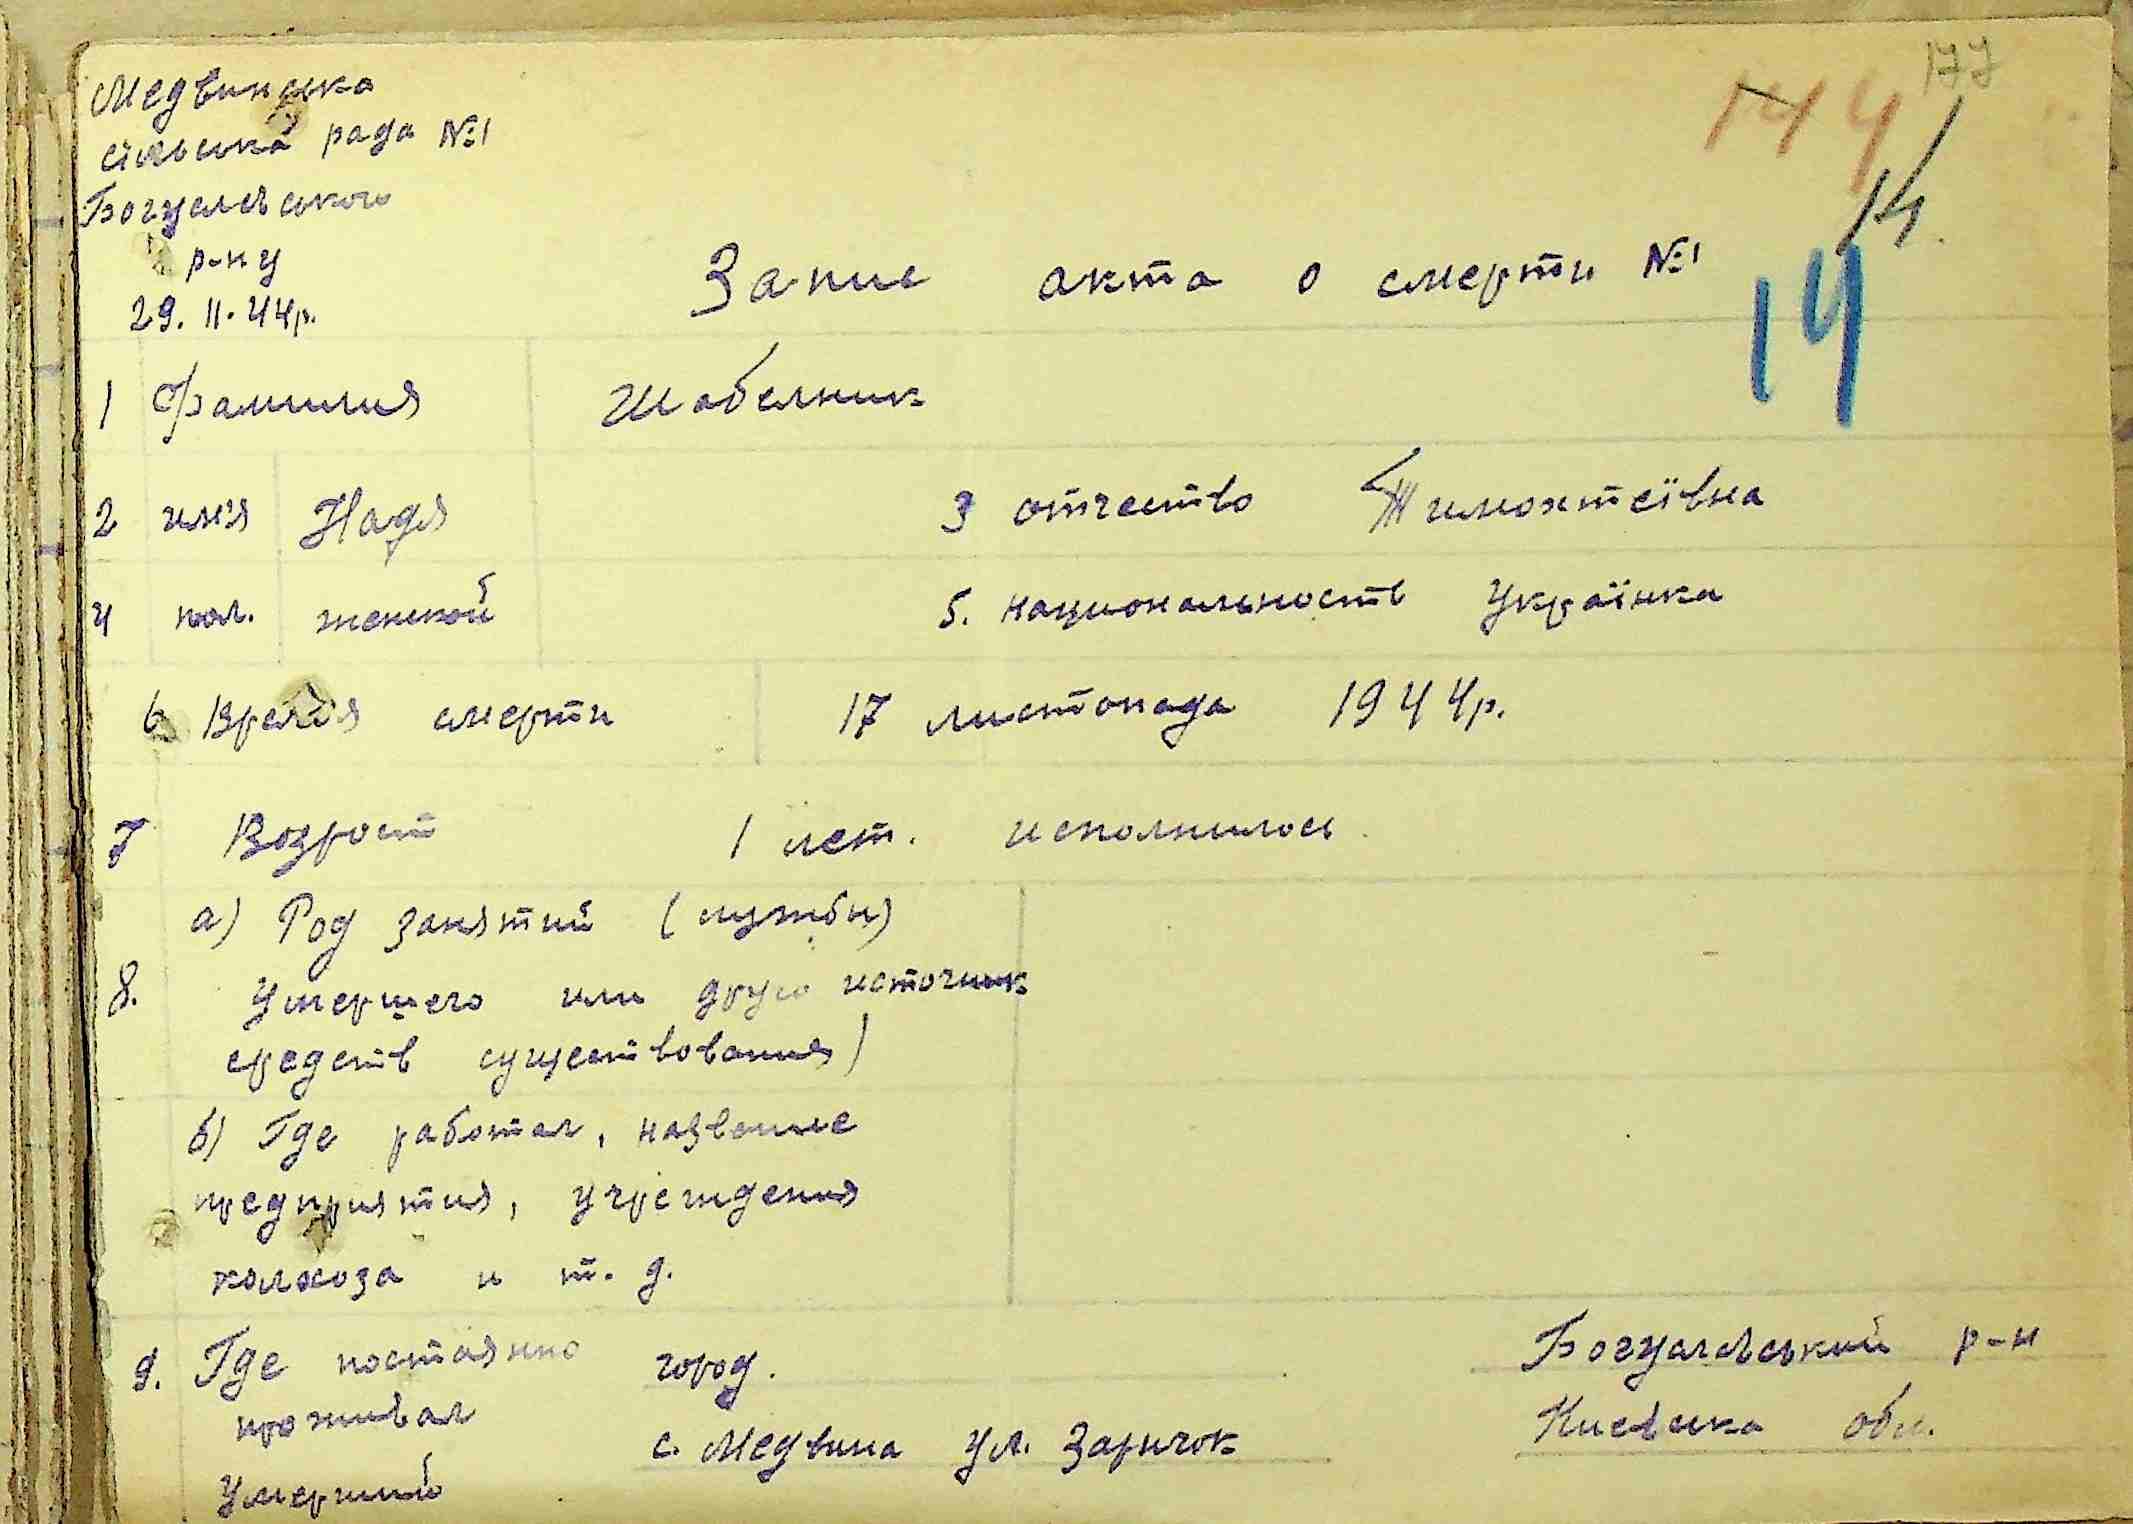 177
144
14
14
Медвинська
сільська рада №1
Богуславського
р-ну
29.11.44р.
Запис акта о смерти №1
1 Фамилия Шабелник
2 имя Надя 3 отчество Тимохтеївна
4 пол. женской 5. национальность Українка
6 Время смерти 17 листопада 1944р.
7 Возрост 1 лет. исполнилось
а) Род занятий (службы)
8. умершего или друго источник
средств существования)
б) Где работал, название
предприятия, учреждения
колхоза и т. д.
9. Где постоянно город. Богуславський р-н
проживал с. Медвина ул. Заричок Киевська обл.
Умерший